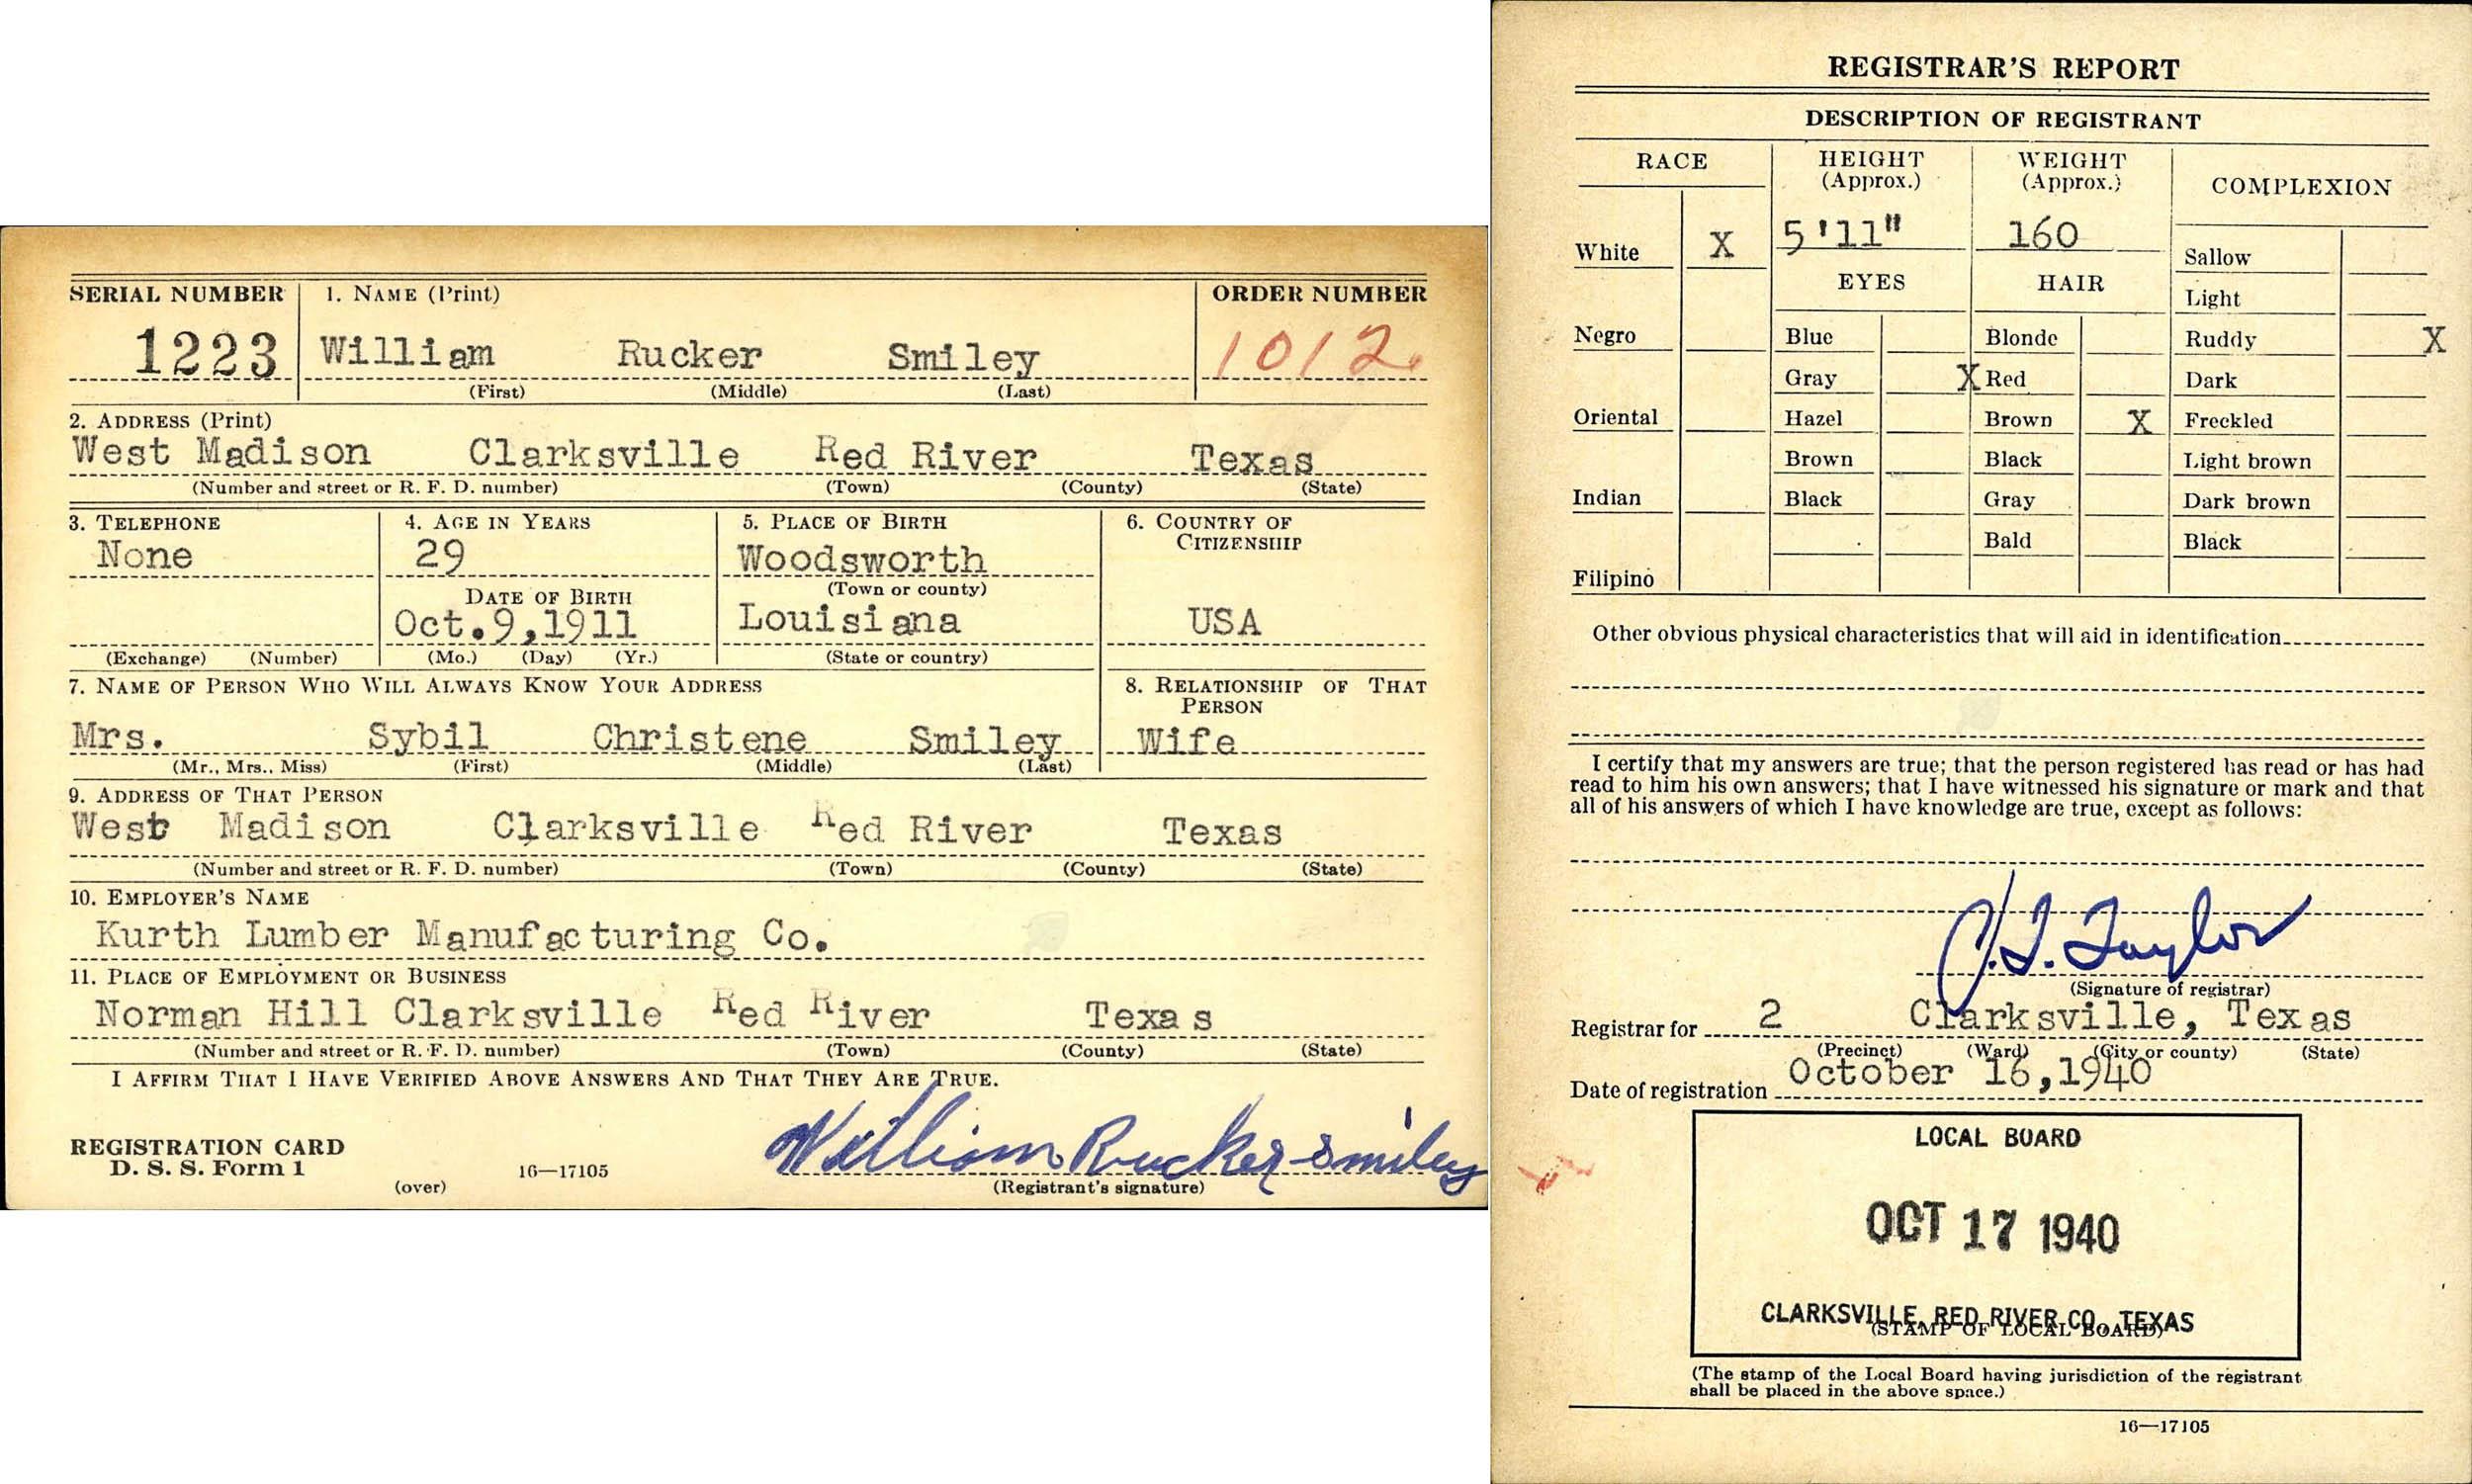 SERIAL NUMBER 1. NAME (Print) ORDER NUMBER
1223 William Rucker Smiley 1012
(First) (Middle) (Last)
2. ADDRESS (Print)
West Madison Clarksville Red River Texas
(Number and street or R. F. D. number) (Town) (County) (State)
3. TELEPHONE 4. AGE IN YEARS 5. PLACE OF BIRTH 6. COUNTRY OF CITIZENSHIP
None 29 Woodsworth
(Town or county)
DATE OF BIRTH
Oct.9,1911 Louisiana USA
(Exchange) (Number) (Mo.) (Day) (Yr.) (State or country)
7. NAME OF PERSON WHO WILL ALWAYS KNOW YOUR ADDRESS 8. RELATIONSHIP OF THAT PERSON
Mrs. Sybil Christene Smiley Wife
(Mr., Mrs., Miss) (First) (Middle) (Last)
9. ADDRESS OF THAT PERSON
West Madison Clarksville Red River Texas
(Number and street or R. F. D. number) (Town) (County) (State)
10. EMPLOYER'S NAME
Kurth Lumber Manufacturing Co.
11. PLACE OF EMPLOYMENT OR BUSINESS
Norman Hill Clarksville Red River Texas
(Number and street or R. F. D. number) (Town) (County) (State)
I AFFIRM THAT I HAVE VERIFIED ABOVE ANSWERS AND THAT THEY ARE TRUE.
William Rucker Smiley
REGISTRATION CARD
D. S. S. Form 1 16—17105
(over) (Registrant's signature)
REGISTRAR'S REPORT
DESCRIPTION OF REGISTRANT
RACE HEIGHT (Approx.) WEIGHT (Approx.) COMPLEXION
White X 5'11" 160 Sallow
EYES HAIR Light
Negro Blue Blonde Ruddy X
Gray X Red Dark
Oriental Hazel Brown X Freckled
Brown Black Light brown
Indian Black Gray Dark brown
Bald Black
Filipino
Other obvious physical characteristics that will aid in identification
I certify that my answers are true; that the person registered has read or has had
read to him his own answers; that I have witnessed his signature or mark and that
all of his answers of which I have knowledge are true, except as follows:
Taylor
(Signature of registrar)
Registrar for 2 Clarksville, Texas
(Precinct) (Ward) (City or county) (State)
Date of registration October 16,1940
LOCAL BOARD
OCT 17 1940
CLARKSVILLE, RED RIVER CO., TEXAS
(STAMP OF LOCAL BOARD)
(The stamp of the Local Board having jurisdiction of the registrant
shall be placed in the above space.)
16—17105